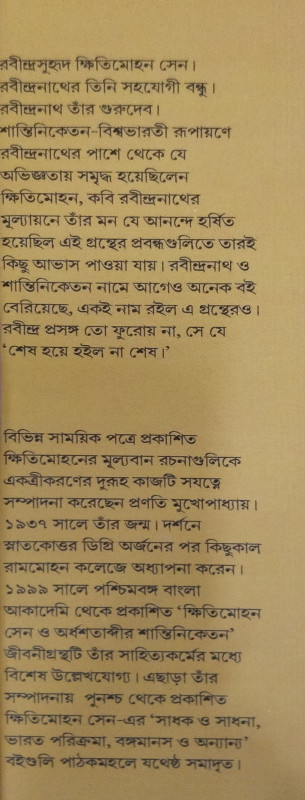 রবীন্দ্রসুহৃদ ক্ষিতিমোহন সেন।
রবীন্দ্রনাথের তিনি সহযোগী বন্ধু।
রবীন্দ্রনাথ তাঁর গুরুদেব।
শান্তিনিকেতন-বিশ্বভারতী রূপায়ণে
রবীন্দ্রনাথের পাশে থেকে যে
অভিজ্ঞতায় সমৃদ্ধ হয়েছিলেন
ক্ষিতিমোহন, কবি রবীন্দ্রনাথের
মূল্যায়নে তাঁর মন যে আনন্দে হর্ষিত
হয়েছিল এই গ্রন্থের প্রবন্ধগুলিতে তারই
কিছু আভাস পাওয়া যায়। রবীন্দ্রনাথ ও
শান্তিনিকেতন নামে আগেও অনেক বই
বেরিয়েছে, একই নাম রইল এ গ্রন্থেরও।
রবীন্দ্র প্রসঙ্গ তো ফুরোয় না, সে যে
‘শেষ হয়ে হইল না শেষ।’
বিভিন্ন সাময়িক পত্রে প্রকাশিত
ক্ষিতিমোহনের মূল্যবান রচনাগুলিকে
একত্রীকরণের দুরূহ কাজটি সযত্নে
সম্পাদনা করেছেন প্রণতি মুখোপাধ্যায়।
১৯৩৭ সালে তাঁর জন্ম। দর্শনে
স্নাতকোত্তর ডিগ্রি অর্জনের পর কিছুকাল
রামমোহন কলেজে অধ্যাপনা করেন।
১৯৯৯ সালে পশ্চিমবঙ্গ বাংলা
আকাদেমি থেকে প্রকাশিত ‘ক্ষিতিমোহন
সেন ও অর্ধশতাব্দীর শান্তিনিকেতন’
জীবনীগ্রন্থটি তাঁর সাহিত্যকর্মের মধ্যে
বিশেষ উল্লেখযোগ্য। এছাড়া তাঁর
সম্পাদনায় পুনশ্চ থেকে প্রকাশিত
ক্ষিতিমোহন সেন-এর ‘সাধক ও সাধনা,
ভারত পরিক্রমা, বঙ্গমানস ও অন্যান্য’
বইগুলি পাঠকমহলে যথেষ্ট সমাদৃত।